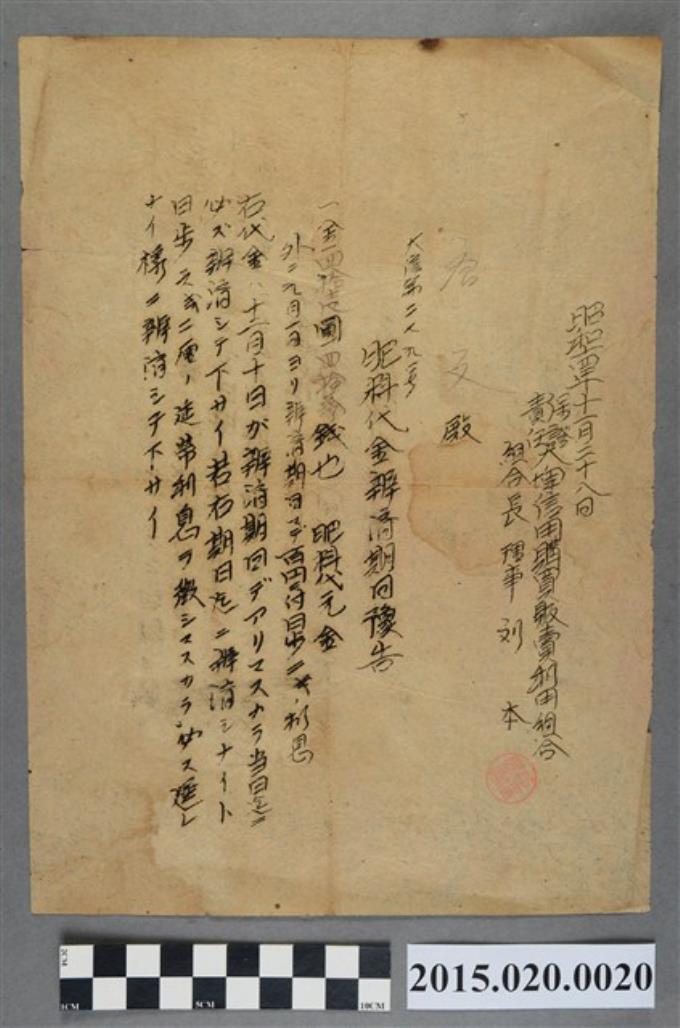 昭和四年十一月二十八日
保證
責任 大埤信用購買販賣利用組合
組合長理事 刘 本
殿
肥料代金辨濟期日豫告
一金四拾 圓四拾 錢也 肥料代元金
外ニ九月一日ヨリ辨濟期日マデ百円ニ付日歩二 利息
右代金ハ十二月十日ガ辨濟期日デアリマスカラ当日迄ニ
必ズ辨濟シテ下サイ若右期日迄ニ辨濟シナイト
日歩 ノ延帶利息ヲ徴シマスカラ必ズ遅レ
ナイ様ニ辨濟シテ下サイ
2CM
1CM
5CM
10CM
2015.020.0020